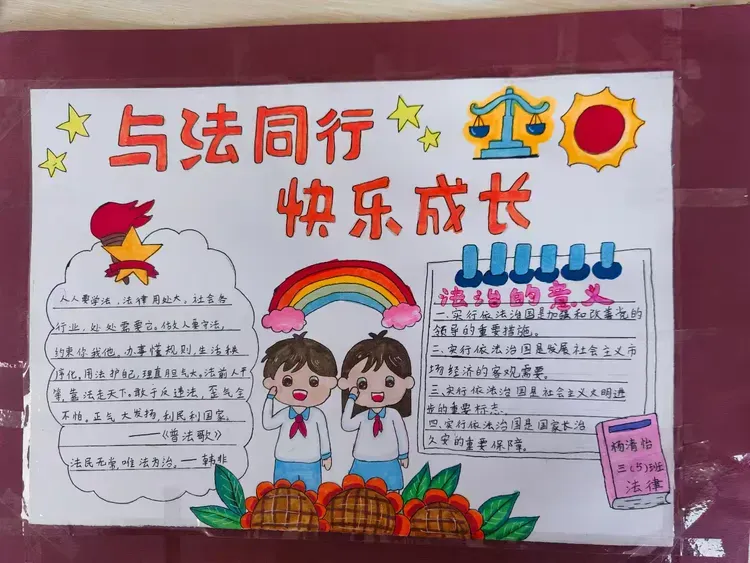 与法同行
快乐成长
人人要学法，法律用处大，社会各
行业，处处需要它。做人要守法，
约束你我他，办事懂规则，生活秩
序化。用法护自己，理直胆气大。法前人平
等，靠法走天下。敢于反违法，歪气全
不怕，正气大发扬，利民利国家。
——《普法歌》
法民无常，唯法为治，——韩非
法治的意义
一.实行依法治国是加强和改善党的
领导的重要措施。
二.实行依法治国是发展社会主义市
场经济的客观需要。
三.实行依法治国是社会主义文明进
步的重要标志.
四.实行依法治国是国家长治
久安的重要保障。
杨清怡
三(5)班
法律